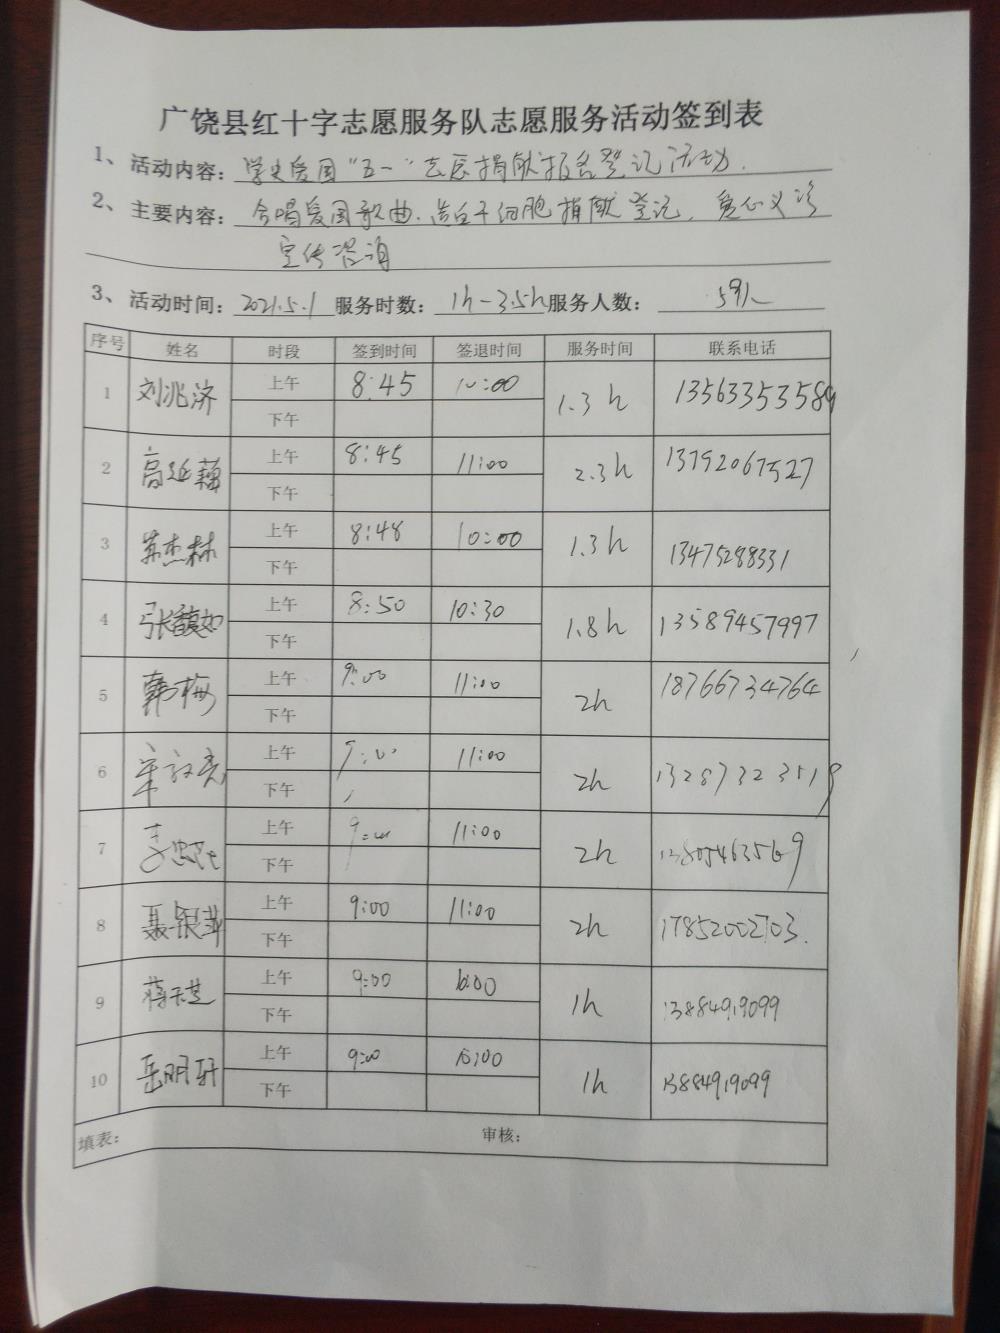 广饶县红十字志愿服务队志愿服务活动签到表
1、活动内容：学史爱国“五一”志愿捐献报名登记活动.
2、主要内容：合唱爱国歌曲.造血干细胞捐献登记，爱心义诊
宣传咨询
3、活动时间：2021.5.1 服务时数：1h-3.5h 服务人数：59人
序号 姓名 时段 签到时间 签退时间 服务时间 联系电话
1 刘兆济 上午 8:45 10:00 1.3h 13563353589
下午
2 高延 上午 8:45 11:00 2.3h 13792067527
下午
3 苏杰林 上午 8:48 10:00 1.3h 13475288331
下午
4 张馥如 上午 8:50 10:30 1.8h 13589457997
下午
5 韩梅 上午 9:00 11:00 2h 18766734764
下午
6 上午 11:00 2h 13287323519
下午
7 上午 11:00 2h 13805463569
下午
8 聂银萍 上午 9:00 11:00 2h 17852002703.
下午
9 蒋天芝 上午 9:00 10:00 1h 13884919099
下午
10 岳明轩 上午 9:00 10:00 1h 13884919099
下午
填表： 审核：